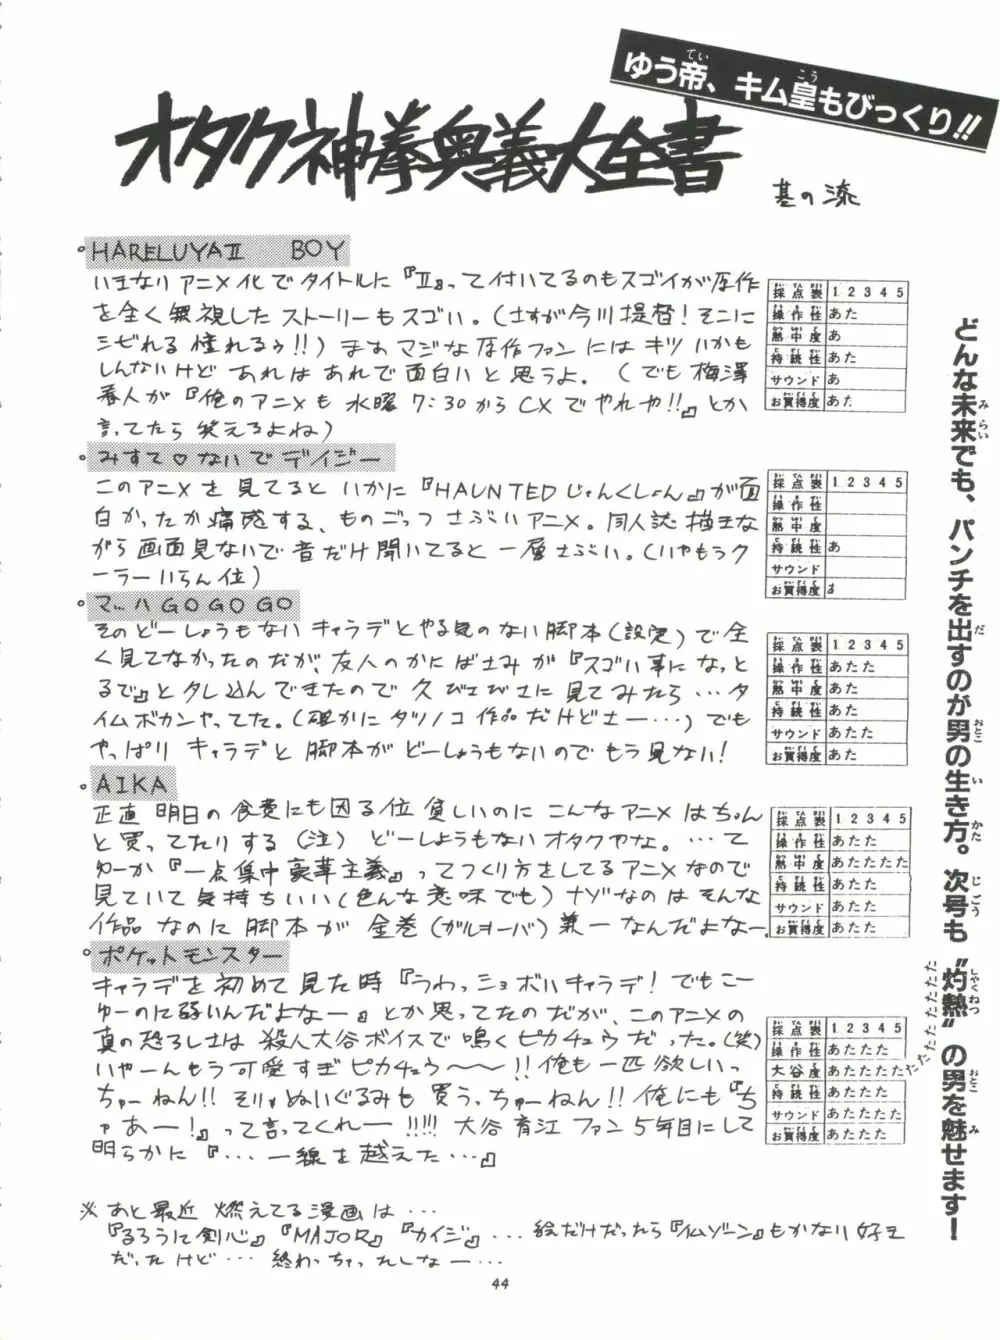 ゆう帝、キム皇もびっくり!!
オタク神拳奥義大全書
其の漆
。HARELUYAⅡ BOY
いきなりアニメ化でタイトルに『Ⅱ』って付いてるのもスゴイが原作
を全く無視したストーリーもスゴい。(さすが今川提督!そこに
シビれる憧れるゥ!!)まぁマジな原作ファンにはキツいかも
しんないけど あれはあれで面白いと思うよ。(でも梅澤
春人が『俺のアニメも水曜7:30からCXでやれや!!』とか
言ってたら笑えるよね)
採点表 1 2 3 4 5
操作性 あた
熱中度 あ
持続性 あた
サウンド あ
お買得度 あた
。みすて♡ないでデイジー
このアニメを見てるといかに『HAUNTEDじゃんくしょん』が面
白かったか痛感する、ものごっつさぶいアニメ。同人誌描きな
がら画面見ないで音だけ聞いてると一層さぶい。(いやもうク
ーラーいらん位)
採点表 1 2 3 4 5
操作性
熱中度
持続性 あ
サウンド
お買得度 あ
。マッハGOGOGO
そのどーしょうもないキャラデとやる気のない脚本(設定)で全
く見てなかったのだが、友人のかにばさみが『スゴい事になっと
るで』とタレ込んできたので久びさびさに見てみたら…タ
イムボカンやってた。(確かにタツノコ作品だけどさー…)でも
やっぱりキャラデと脚本がどーしょうもないのでもう見ない!
採点表 1 2 3 4 5
操作性 あたた
熱中度 あた
持続性 あた
サウンド あたた
お買得度 あた
。AIKA
正直明日の食費にも困る位貧しいのにこんなアニメはちゃん
と買ってたりする(泣)どーしようもないオタクやな。…て
ゆーか『一点集中豪華主義』ってつくり方をしてるアニメなので
見ていて気持ちいい(色んな意味でも)ナゾなのはそんな
作品なのに脚本が金巻(ガルキーバ)兼一なんだよなー。
採点表 1 2 3 4 5
操作性 あたた
熱中度 あたたたた
持続性 あたた
サウンド あたた
お買得度 あたた
。ポケットモンスター
キャラデを初めて見た時『うわっショボいキャラデ!でもこー
ゆーのに弱いんだよなー』とか思ってたのだが、このアニメの
真の恐ろしさは殺人大谷ボイスで鳴くピカチュウだった。(笑)
いやーんもう可愛すぎピカチュウ〜〜!!俺も一匹欲しいっ
ちゅーねん!!そりゃぬいぐるみも買うっちゅーねん!!俺にも『ち
ゃあー!』って言ってくれー!!!!!大谷育江ファン5年目にして
明らかに『…一線を越えた…』
採点表 1 2 3 4 5
操作性 あたたた
大谷度 あたたたたたたたたたたたた
持続性 あたたた
サウンド あたたたた
お買得度 あたたた
※あと最近燃えてる漫画は…
『るろうに剣心』『MAJOR』『カイジ』…絵だけだったら『仏ゾーン』もかなり好き
だったけど…終わっちゃったしなー…
どんな未来でも、パンチを出すのが男の生き方。次号も“灼熱”の男を魅せます!
44